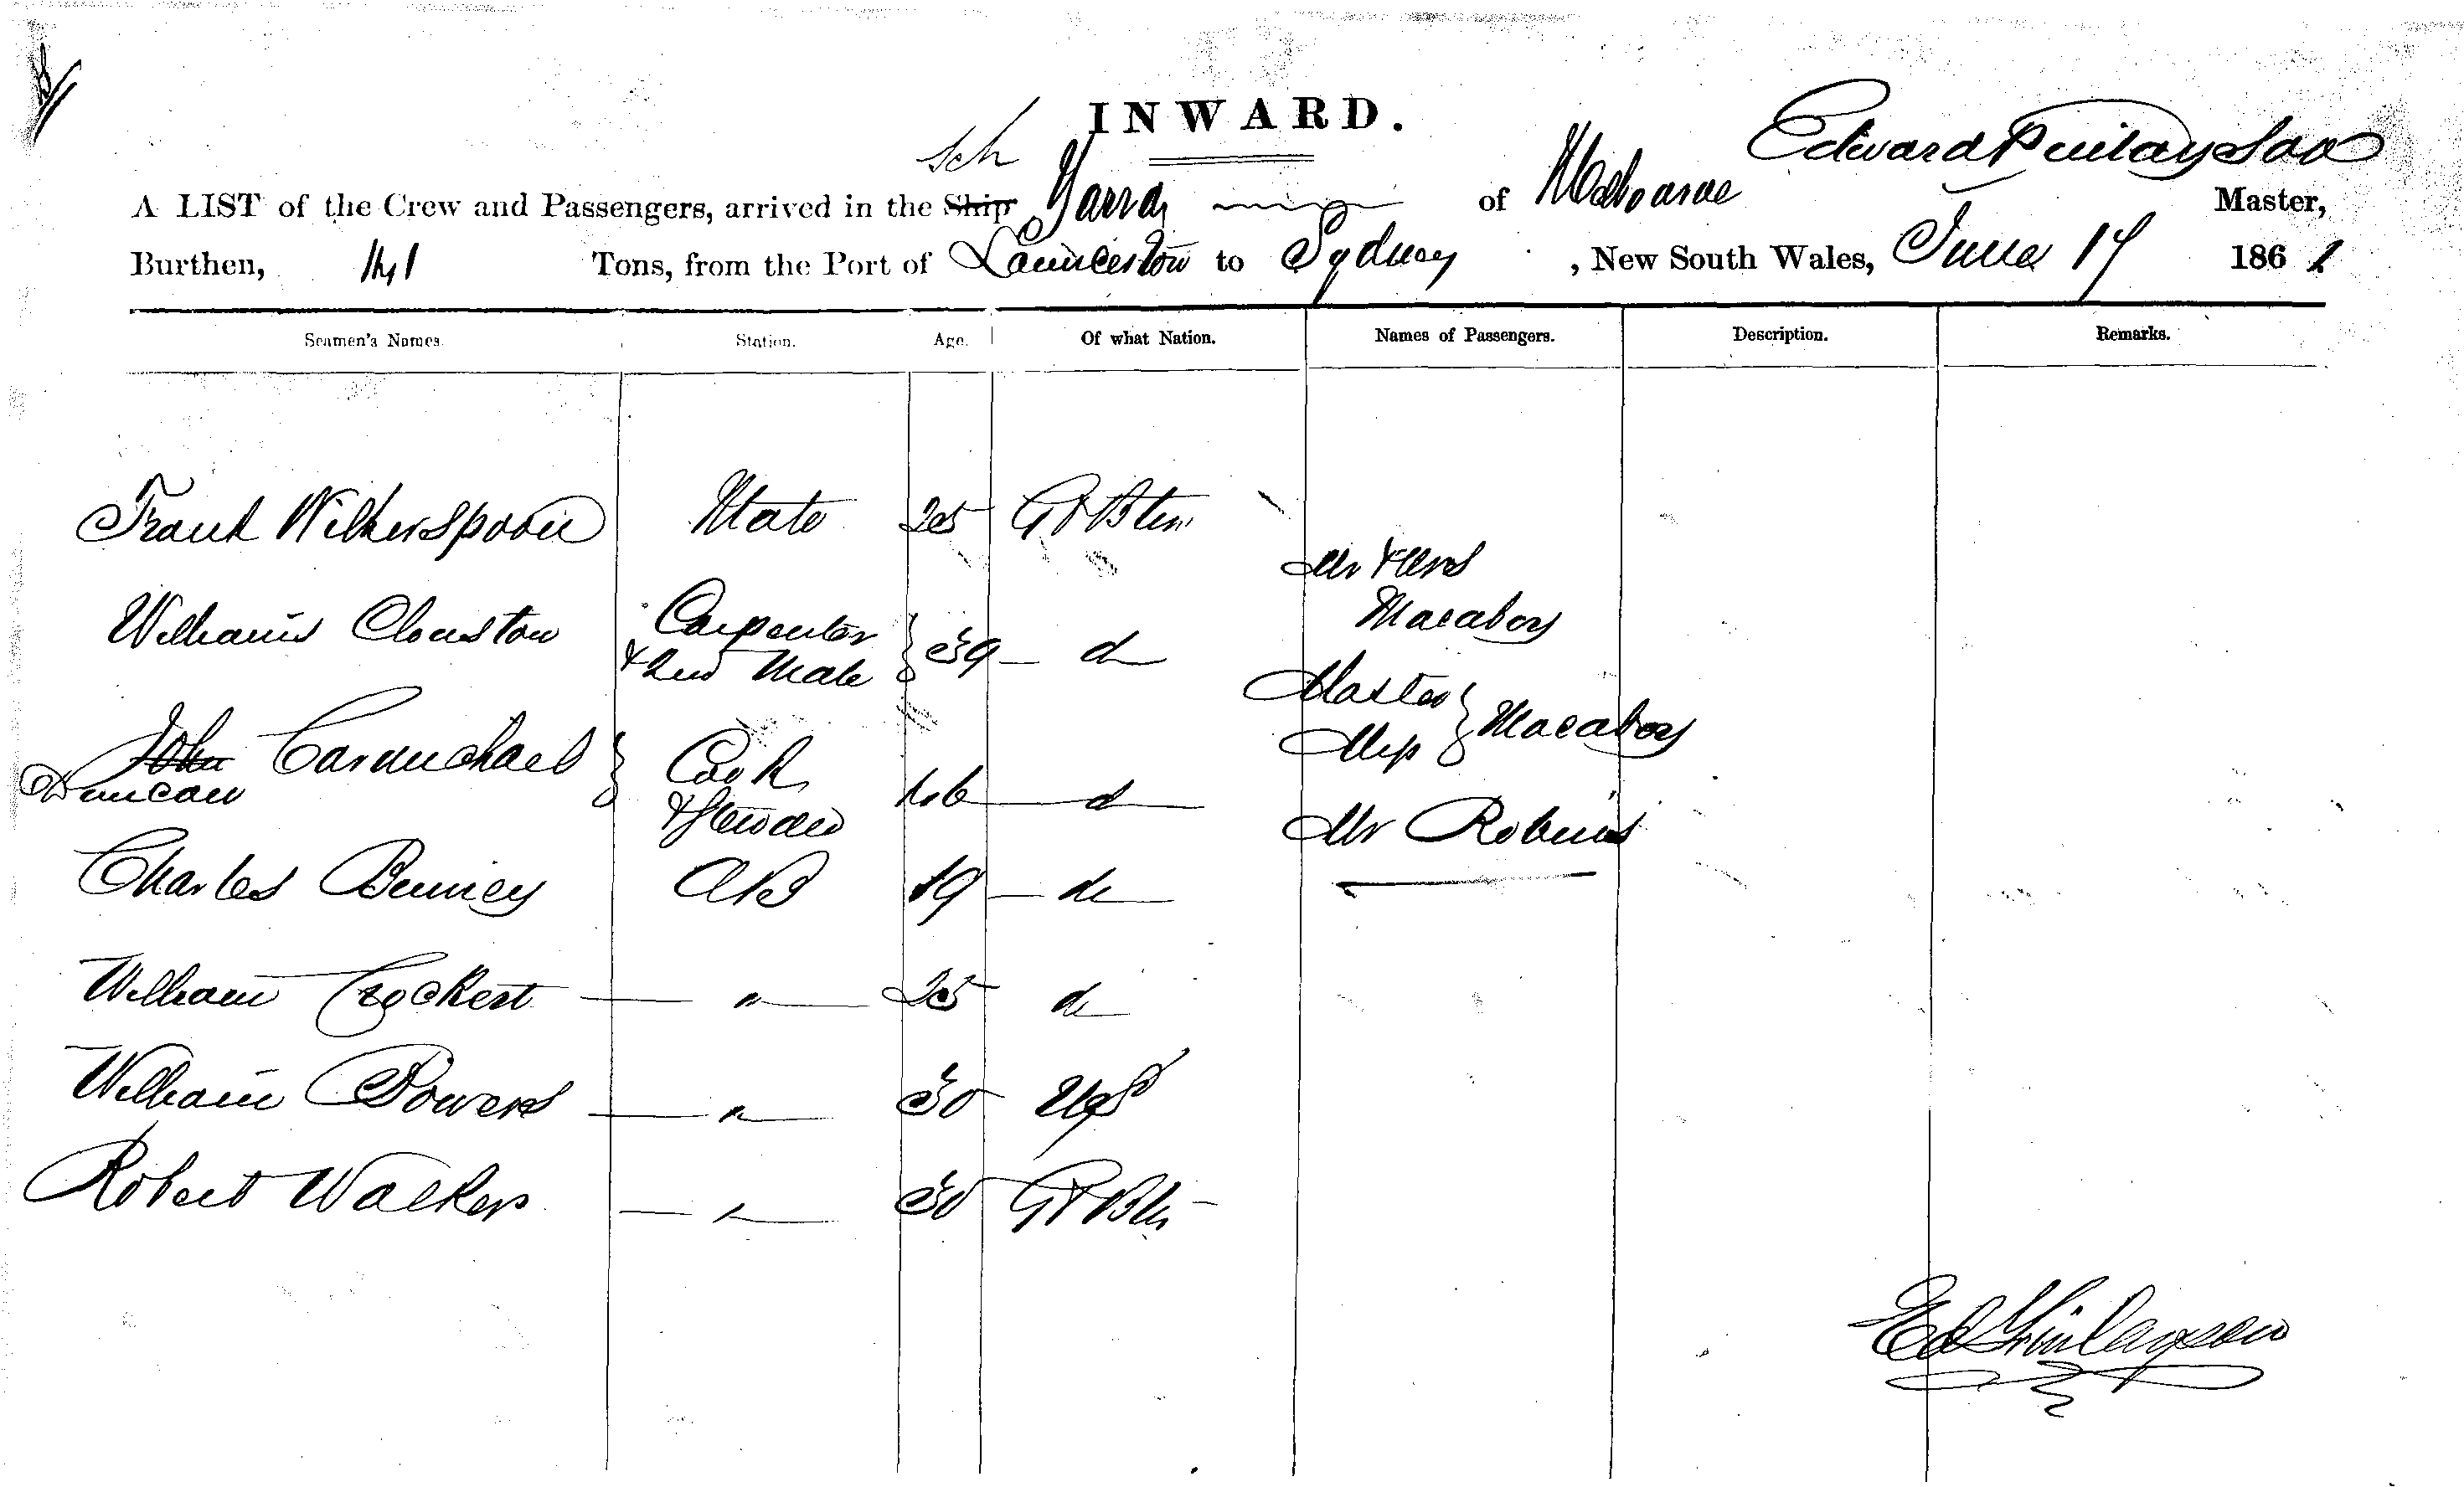 INWARD.
Sch Edward Finlayson
A LIST of the Crew and Passengers, arrived in the Ship Yarra of Melbourne Master,
Burthen, 141 Tons, from the Port of Launceston to Sydney , New South Wales, June 17 186
Seamen's Names. Station. Age. Of what Nation. Names of Passengers. Description. Remarks.
Frank Witherspoon Mate 25 Gt Btn
Mr & Mrs
Macaboy
William Clouston Carpenter
& 2nd Mate 39 d
Master
Miss Macaboy
John Carmichael Cook
Duncan & Steward d
Mr Robins
Charles Burney AB 19 do
William Crockert " 25 do
William Powers " 30 US
Robert Walker " 30 Gt Btn
Ed Finlayson